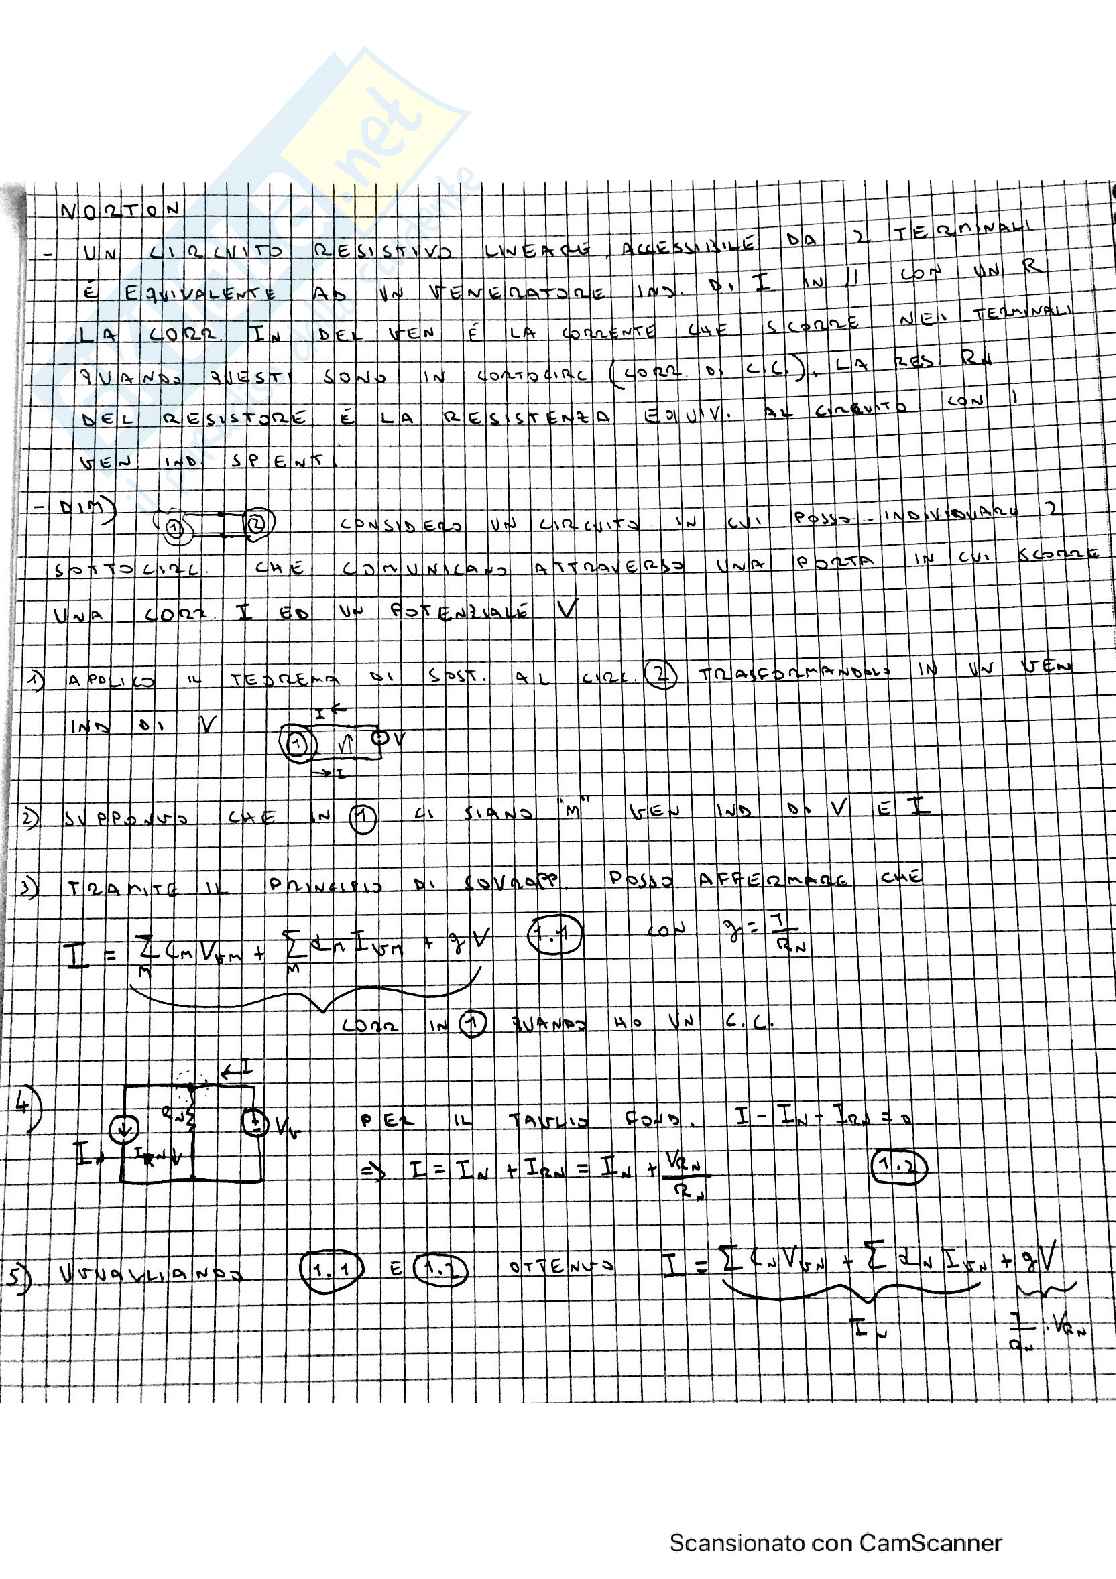 NORTON
- UN CIRCUITO RESISTIVO LINEARE, ACCESSIBILE DA 2 TERMINALI
È EQUIVALENTE AD UN GENERATORE IND. DI I IN // CON UN R
LA CORR IN DEL GEN È LA CORRENTE CHE SCORRE NEI TERMINALI
QUANDO QUESTI SONO IN CORTOCIRC (CORR. DI C.C.). LA RES. RN
DEL RESISTORE È LA RESISTENZA EQUIV. AL CIRCUITO CON I
GEN IND. SPENTI.
- DIM)
1 2 CONSIDERO UN CIRCUITO IN CUI POSSO INDIVIDUARE 2
SOTTOCIRC. CHE COMUNICANO ATTRAVERSO UNA PORTA IN CUI SCORRE
UNA CORR. I ED UN POTENZIALE V
1) APPLICO IL TEOREMA DI SOST. AL CIRC. 2 TRASFORMANDOLO IN UN GEN
IND DI V
I ←
1 V
→ I
2) SUPPONGO CHE IN 1 CI SIANO "M" GEN IND DI V E I
3) TRAMITE IL PRINCIPIO DI SOVRAPP. POSSO AFFERMARE CHE
I = Σ_M C_M V_GM + Σ_M d_M I_GM + gV 1.1 CON g = 1/R_N
CORR IN 1 QUANDO HO UN C.C.
4) ← I
R_N V_G
PER IL TAGLIO FOND. I - I_N - I_RN = 0
⇒ I = I_N + I_RN = I_N + V_RN/R_N 1.2
5) UGUAGLIANDO 1.1 E 1.2 OTTENGO I = Σ C_N V_GN + Σ d_N I_GN + gV
I_N 1/R_N · V_RN
Scansionato con CamScanner